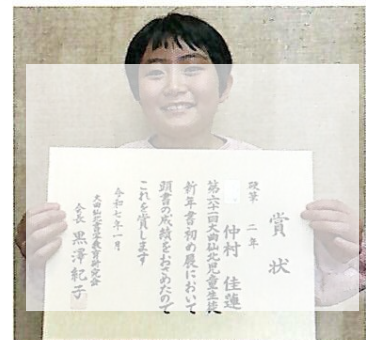 賞状
硬筆 二年
仲村 佳蓮
第六十一回大曲仙北児童生徒
新年書初め展において
頭書の成績をおさめたので
これを賞します
令和七年一月
大曲仙北書写教育研究会
会長 黒澤紀子